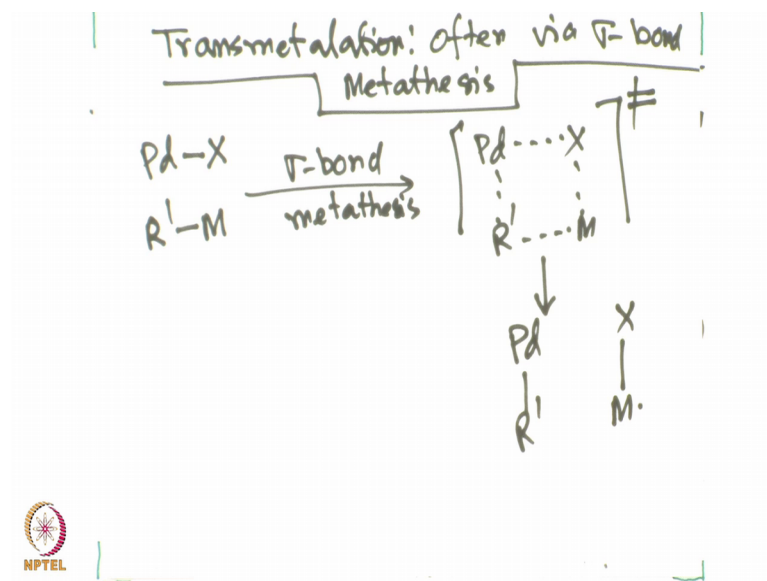 Transmetalation: Often via σ-bond
Metathesis
Pd-X
R'-M
σ-bond
metathesis
Pd----X
R'----M
‡
Pd
R'
X
M.
NPTEL